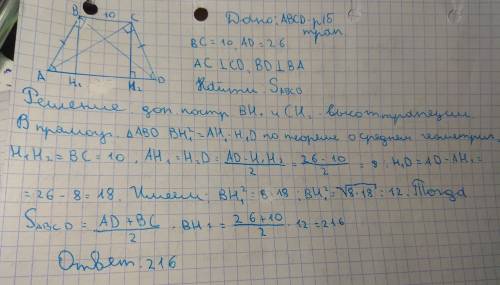 B 10 C
A H₁ H₂ D
Дано: ABCD - р/б
трап.
BC = 10, AD = 26
AC ⊥ CD, BD ⊥ BA
Найти S ABCD
Решение доп. постр BH₁ и CH₂ высот трапеции
В прямоуг. △ABD BH₁² = AH₁ · H₁D по теореме о среднем геометрич.
H₁H₂ = BC = 10, AH₁ = H₂D = AD - H₁H₂ / 2 = 26 - 10 / 2 = 8 H₁D = AD - AH₁ =
= 26 - 8 = 18. Имеем: BH₁² = 8 · 18. BH₁ = √8·18 = 12. Тогда
S ABCD = AD + BC / 2 · BH₁ = 26 + 10 / 2 · 12 = 216
Ответ. 216